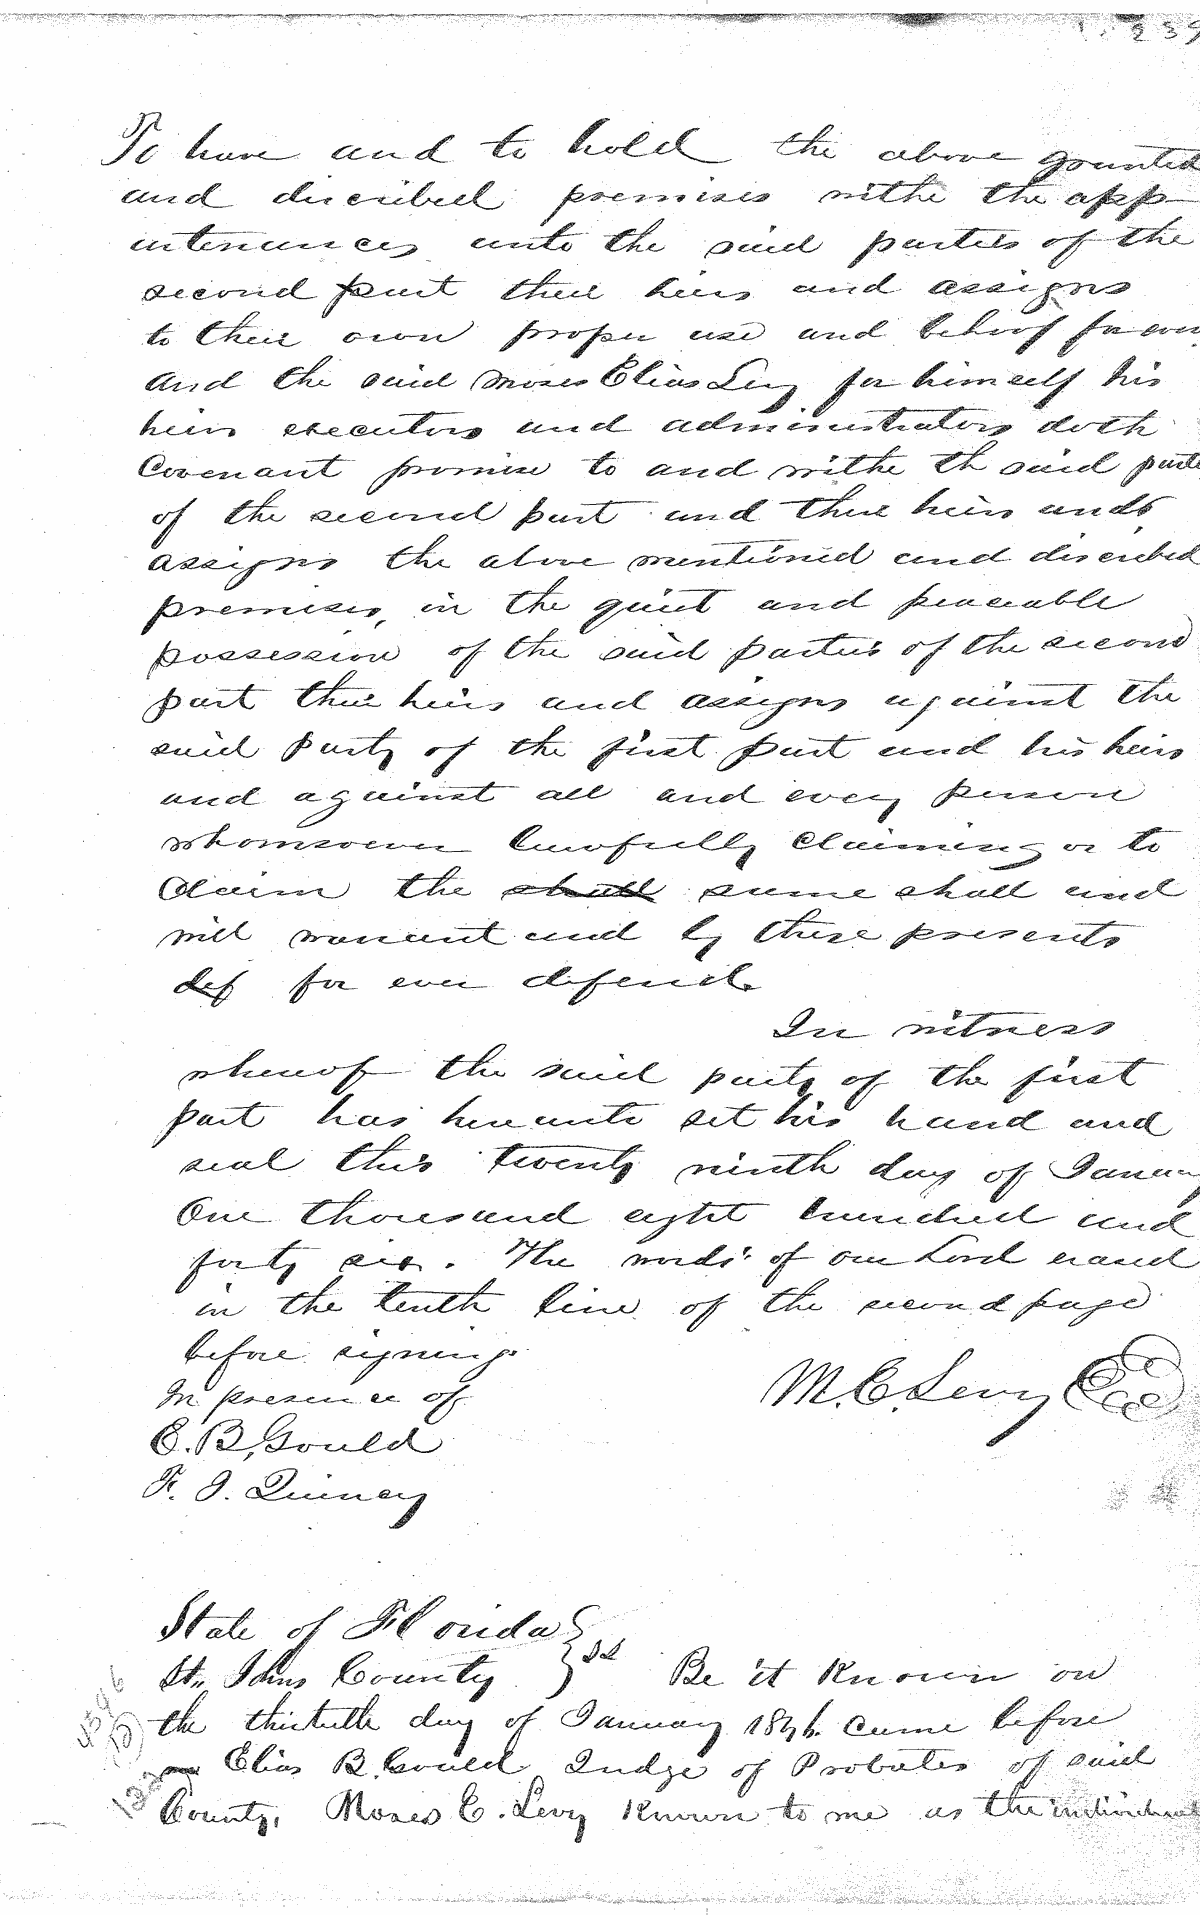 239
To have and to hold the above granted
and discribed premises withe the app
intenances unto the said parties of the
second part their heirs and assigns
to their own proper use and behoof for ever
and the said Moses Elias Levy for himself his
heirs executors and administrators doth
Covenant promise to and withe th said parte
of the second part and their heirs and
assigns the above mentioned and discribed
premises, in the quiet and peaceable
possession of the said parties of the second
part their heirs and assigns against the
said Party of the first part and his heirs
and against all and every person
whomsoever lawfully claiming or to
Claim the shall same shall and
will warrant and by these presents
def for ever defend.
In witness
whereof the said party of the first
part has hereunto set his hand and
seal this twenty ninth day of January
One thousand eight hundred and
forty six. The words of our Lord erased
in the tenth line of the second page
before signing.
In presence of
M. E. Levy
E. B. Gould
F. J. Quincy
State of Florida
St. Johns County Be it Known on
the thirtieth day of January 1846 came before
Elias B. Gould Judge of Probates of said
County, Moses E. Levy Known to me as the individual